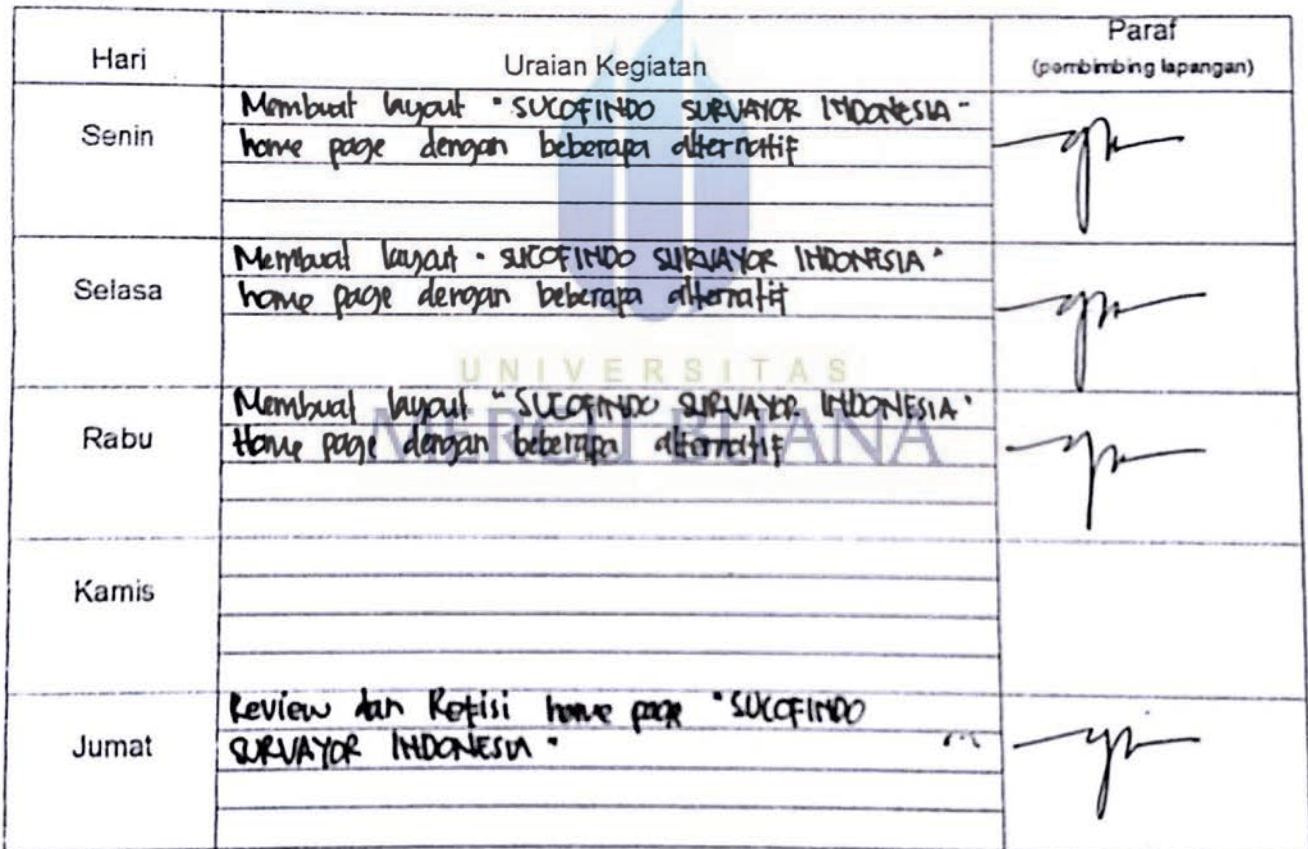 Hari
Uraian Kegiatan
Paraf
(pembimbing lapangan)
Senin
Membuat layout "SUCOFINDO SURVAYOR INDONESIA"
home page dengan beberapa alternatif
Selasa
Membuat layout "SUCOFINDO SURVAYOR INDONESIA"
home page dengan beberapa alternatif
UNIVERSITAS
MERCU BUANA
Rabu
Membuat layout "SUCOFINDO SURVAYOR INDONESIA"
Home page dengan beberapa alternatif
Kamis
Jumat
Review dan Refisi home page "SUCOFINDO
SURVAYOR INDONESIA"